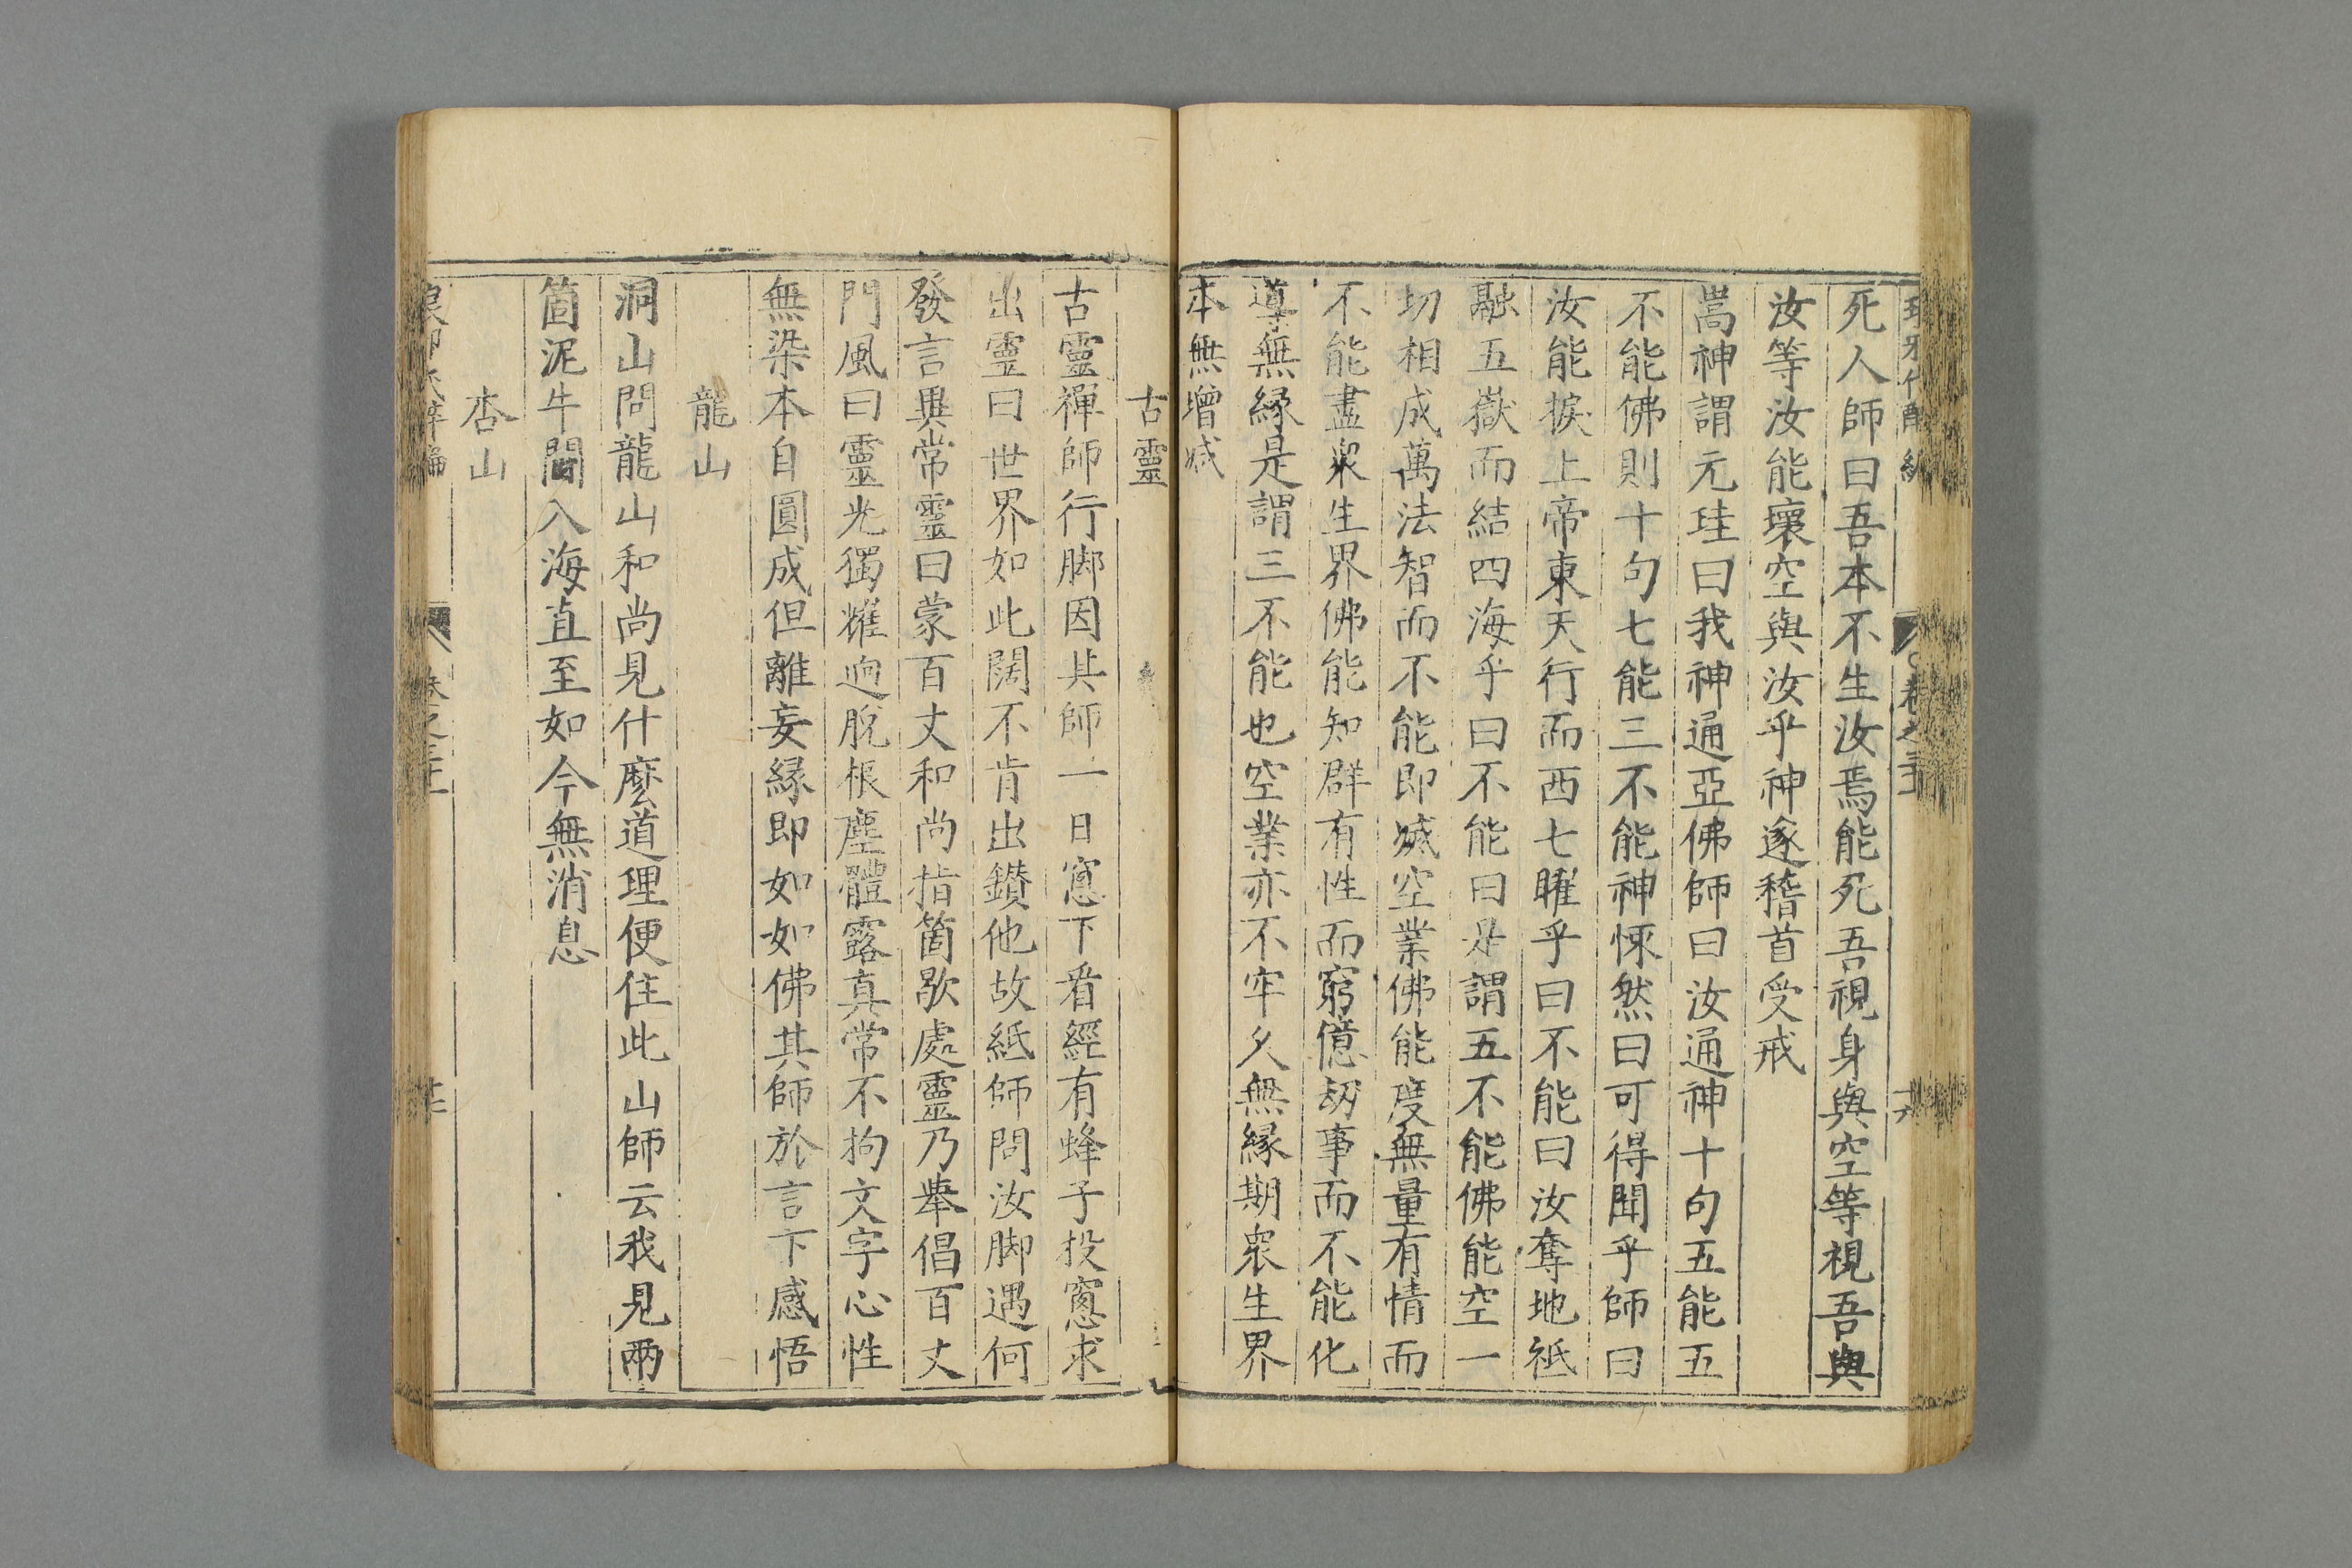 卷之三十
死人師曰吾本不生汝焉能死吾視身與空等視吾與
汝等汝能壞空與汝乎神遂稽首受戒
嵩神謂元珪曰我神通亞佛師曰汝通神十句五能五
不能佛則十句七能三不能神悚然曰可得聞乎師曰
汝能捩上帝東天行而西七曜乎曰不能曰汝奪地祇
融五嶽而結四海乎曰不能曰是謂五不能佛能空一
切相成萬法智而不能即滅空業佛能度無量有情而
不能盡衆生界佛能知群有性而窮億刼事而不能化
導無緣是謂三不能也空業亦不牢久無緣期衆生界
本無增減
古靈
古靈禪師行脚因其師一日窻下看經有蜂子投窻求
出靈曰世界如此闊不肯出鑽他故紙師問汝脚遇何
發言異常靈曰蒙百丈和尚指箇歇處靈乃舉倡百丈
門風曰靈光獨耀逈脫根塵體露真常不拘文字心性
無染本自圓成但離妄緣即如如佛其師於言下感悟
龍山
洞山問龍山和尚見什麼道理便住此山師云我見兩
箇泥牛鬪入海直至如今無消息
杏山
卷之三十